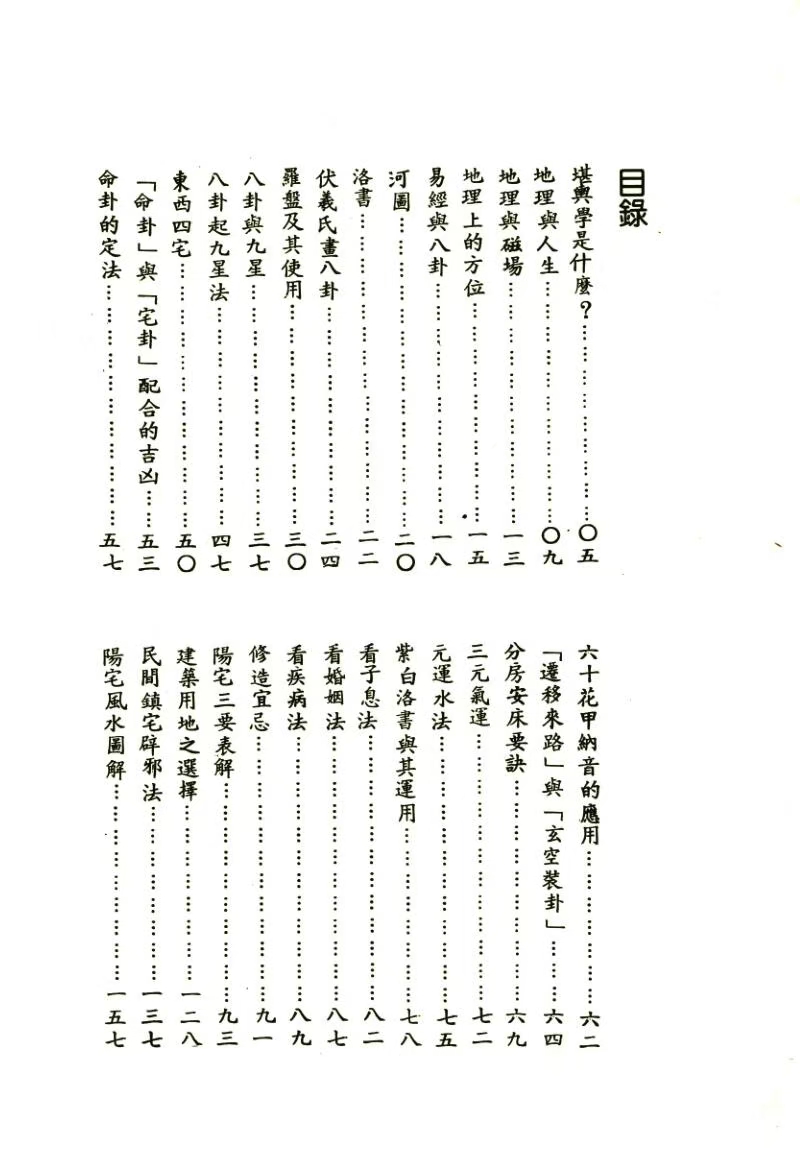 目錄
堪輿學是什麼？……………………〇五
地理與人生……………………〇九
地理與磁場……………………一三
地理上的方位……………………一五
易經與八卦……………………一八
河圖……………………二〇
洛書……………………二二
伏羲氏畫八卦……………………二四
羅盤及其使用……………………三〇
八卦與九星……………………三七
八卦起九星法……………………四七
東西四宅……………………五〇
「命卦」與「宅卦」配合的吉凶……五三
命卦的定法……………………五七
六十花甲納音的應用……………………六二
「遷移來路」與「玄空裝卦」………六四
分房安床要訣……………………六九
三元氣運……………………七二
元運水法……………………七五
紫白洛書與其運用……………………七八
看子息法……………………八二
看婚姻法……………………八七
看疾病法……………………八九
修造宜忌……………………九一
陽宅三要表解……………………九三
建築用地之選擇……………………一二八
民間鎮宅辟邪法……………………一三七
陽宅風水圖解……………………一五七